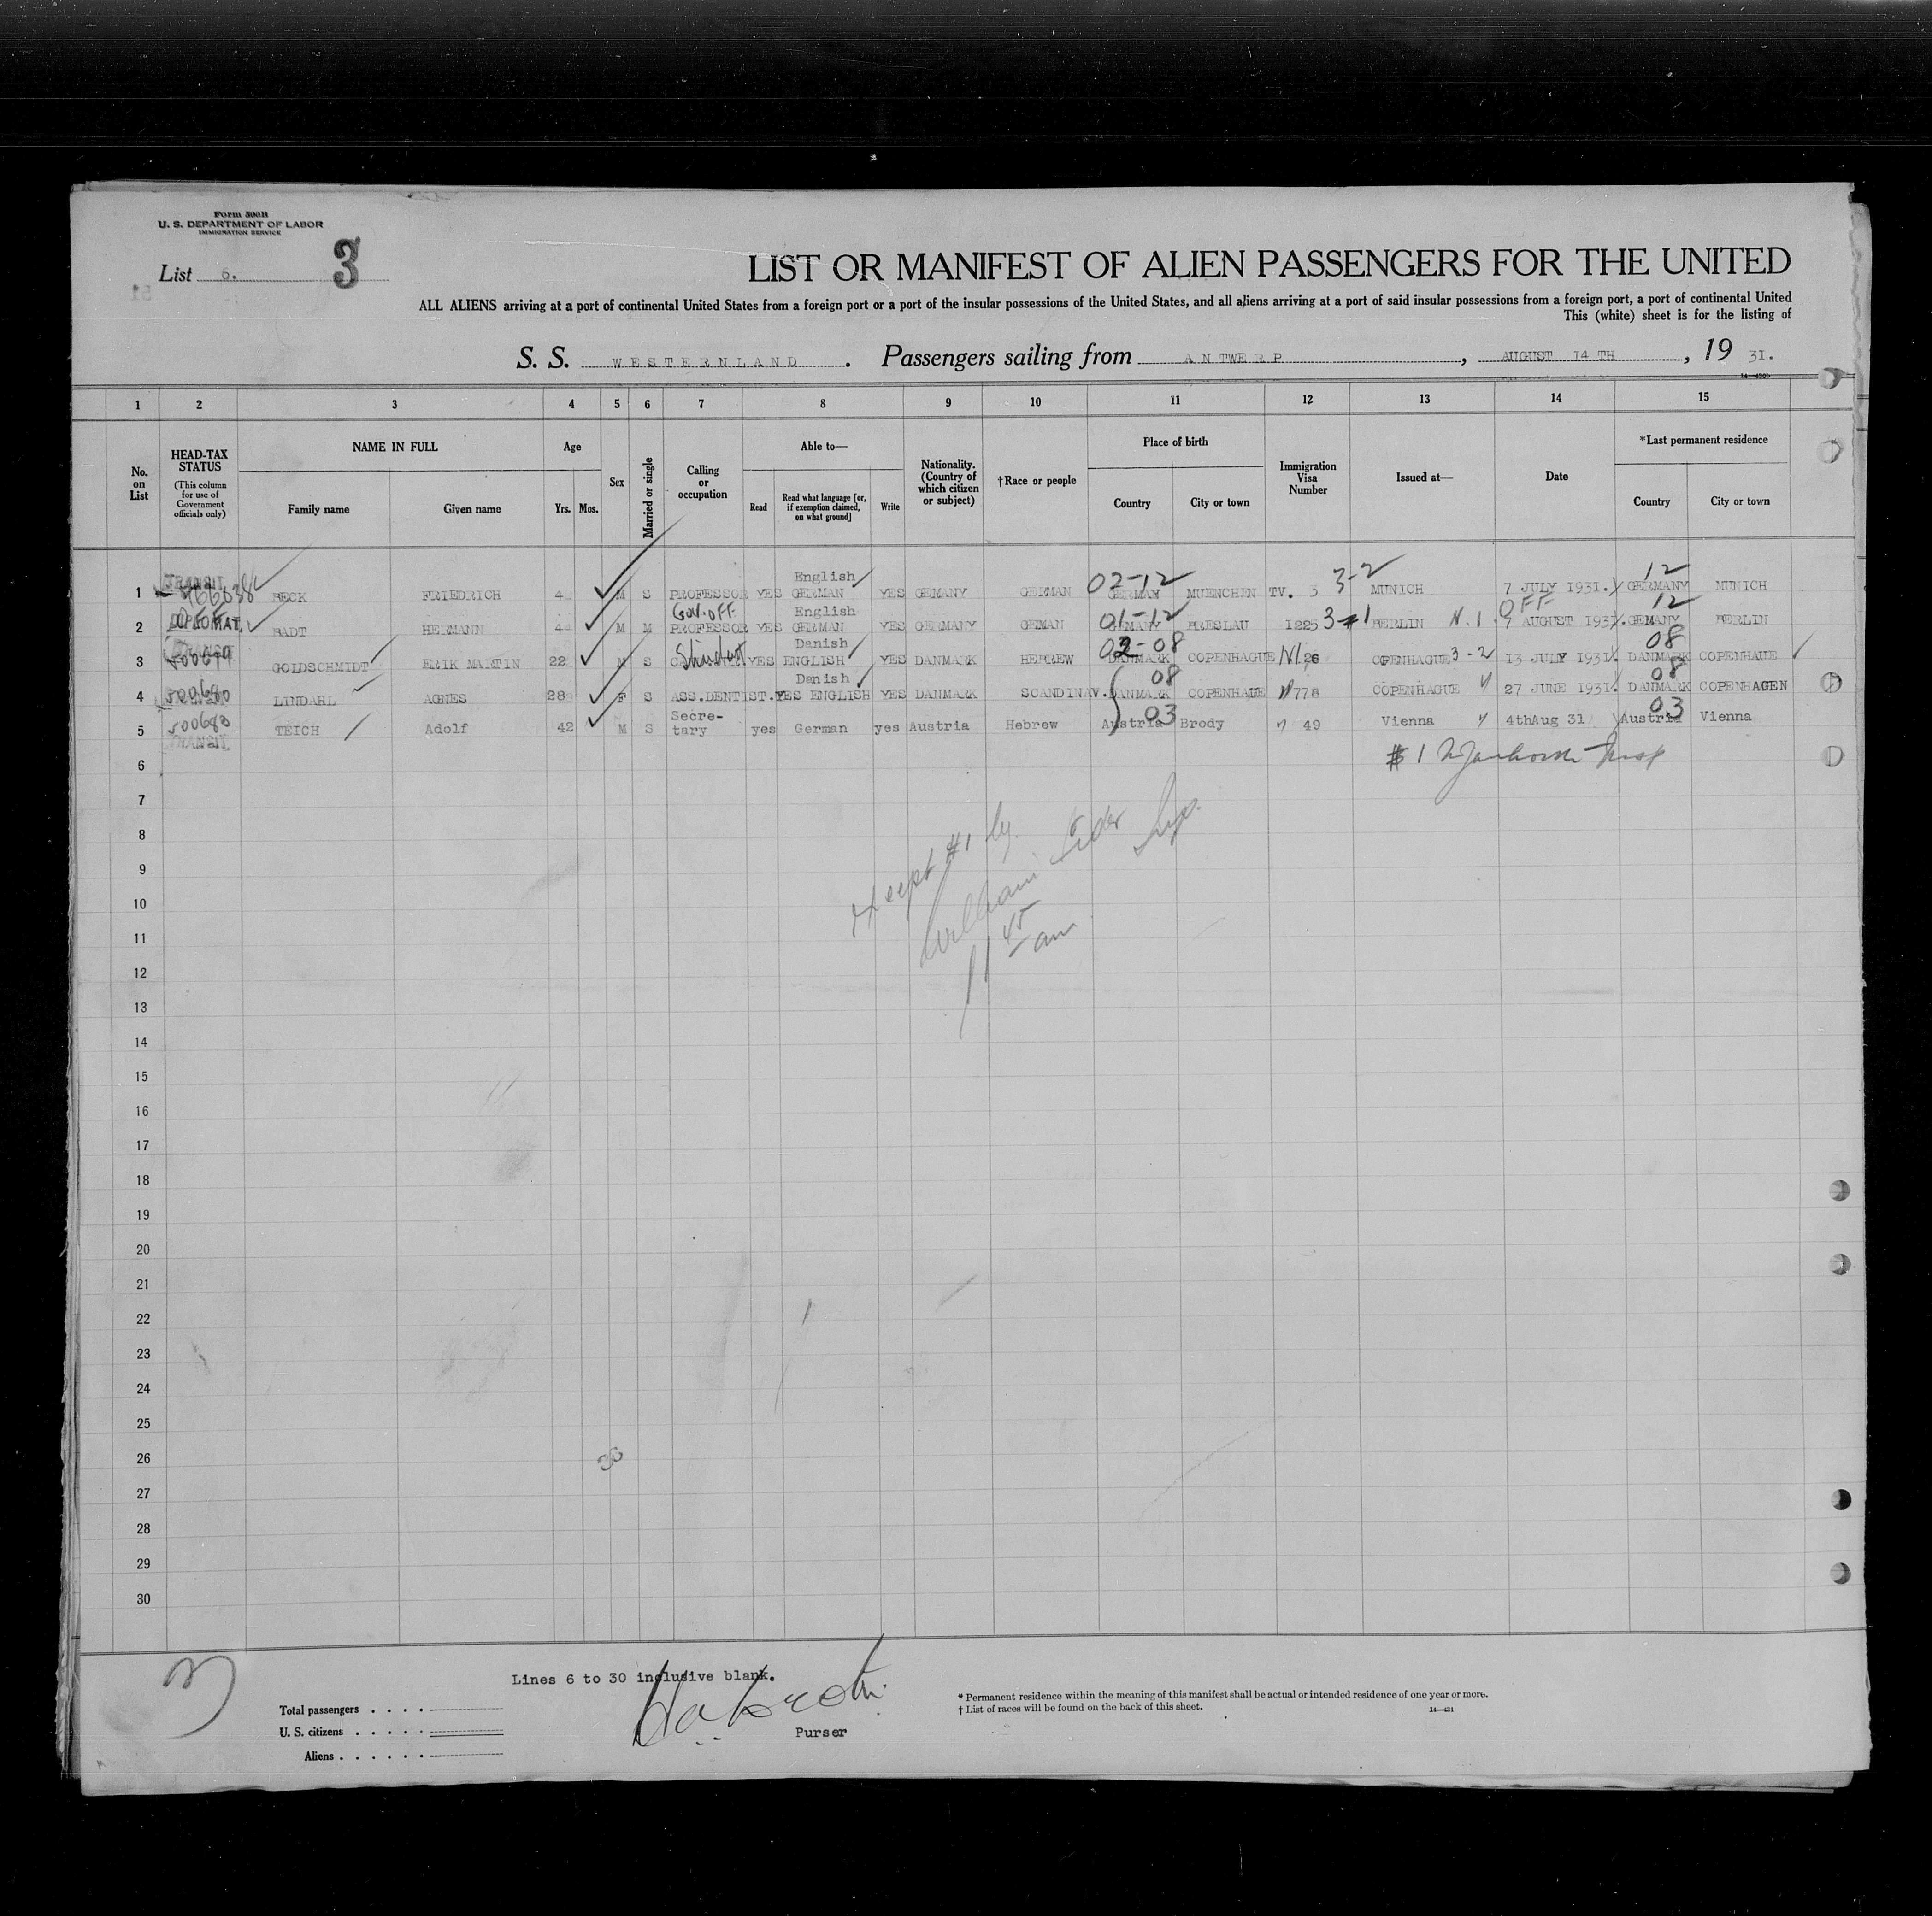 Form 500B
U. S. DEPARTMENT OF LABOR
IMMIGRATION SERVICE
List 6. 3
LIST OR MANIFEST OF ALIEN PASSENGERS FOR THE UNITED
ALL ALIENS arriving at a port of continental United States from a foreign port or a port of the insular possessions of the United States, and all aliens arriving at a port of said insular possessions from a foreign port, a port of continental United
This (white) sheet is for the listing of
S. S. WESTERNLAND. Passengers sailing from ANTWERP, AUGUST 14 TH, 19 31.
1 2 3 4 5 6 7 8 9 10 11 12 13 14 15
No. on List
HEAD-TAX STATUS (This column for use of Government officials only)
NAME IN FULL
Family name
Given name
Age
Yrs. Mos.
Sex
Married or single
Calling or occupation
Able to—
Read
Read what language [or, if exemption claimed, on what ground]
Write
Nationality. (Country of which citizen or subject)
†Race or people
Place of birth
Country
City or town
Immigration Visa Number
Issued at—
Date
*Last permanent residence
Country
City or town
English 02-12 3-2 12
1 TRANSIT BECK FRIEDRICH M S PROFESSOR YES GERMAN YES GEMANY GERMAN GERMAY MUENCHEN TV. 3 MUNICH 7 JULY 1931. GERMANY MUNICH
Gov. Off. English 01-12 OFF 12
2 DIPLOMAT. RADT HERMANN M M PROFESSOR YES GERMAN YES GERMANY GEMAN GEMANY BRESLAU 1225 3-1 BERLIN N. 1. AUGUST 1931. GEMANY BERLIN
Student Danish 02-08 08
3 500679 GOLDSCHMIDT ERIK MARTIN 22 M S YES ENGLISH YES DANMARK HEBREW DANMARK COPENHAGUE 26 OPENHAGUE 3-2 13 JULY 1931. DANMARK COPENHAUE
Danish 08 08
4 500680 LINDAHL AGNES 28 F S ASS.DENTIST. YES ENGLISH YES DANMARK SCANDINAV. DANMARK COPENHAUE 778 COPENHAGUE 27 JUNE 1931. DANMARK COPENHAGEN
Secre- 03 03
5 500683 TRANSIT TEICH Adolf 42 M S tary yes German yes Austria Hebrew Austria Brody 49 Vienna 4thAug 31 Austria Vienna
6 # 1
7
8
9
10
11
12
13
14
15
16
17
18
19
20
21
22
23
24
25
26
27
28
29
30
except #1 by
William
Insp.
11 45 am
Lines 6 to 30 inclusive blank.
Purser
Total passengers . . . .
U. S. citizens . . . . .
Aliens . . . . . .
* Permanent residence within the meaning of this manifest shall be actual or intended residence of one year or more.
† List of races will be found on the back of this sheet.
14—431